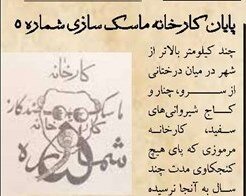 پایان کارخانه ماسک سازی شماره ۵
چند کیلومتر بالاتر از
شهر در میان درختانی
از سرو، چنار و
کاج شیروانی‌های
سفید، کارخانه
مرموزی که پای هیچ
کنجکاوی مدت چند
سال به آنجا نرسیده
کارخانه
ماسک
کارخانه
شماره